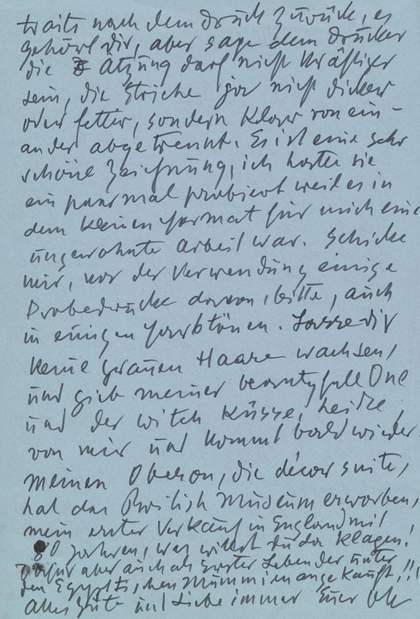 traits nach dem druck zurück, es
gehört dir, aber sage dem drucker
die Ätzung darf nicht kräftiger
sein, die Striche gar nicht dicker
oder fetter, sondern klar von ein-
ander abgetrennt. Es ist eine sehr
schöne Zeichnung, ich hatte sie
ein paarmal probiert weil es in
dem kleinen format für mich eine
ungewohnte arbeit war. Schicke
mir, vor der Verwendung einige
Probedrucke davon, bitte, auch
in einigen farbtönen. Lasse dir
keine grauen Haare wachsen,
und gieb meiner beautyfull One
und der witch Küsse, beide
von mir und kommt bald wieder.
meinen Oberon, die décor suite,
hat das British Museum erworben,
mein erster Verkauf in England mit
80 Jahren, was willst du da klagen.
Dafür aber auch als erster Lebender unter
den Egyptischen Mummien angekauft!!
alles gute und Liebe immer Euer OK